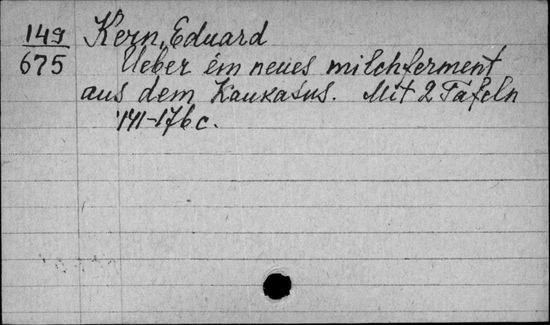 149
675
Kern, Eduard
Ueber ein neues milchferment
aus dem Kaukasus. Mit 2 Tafeln
141-176 c.